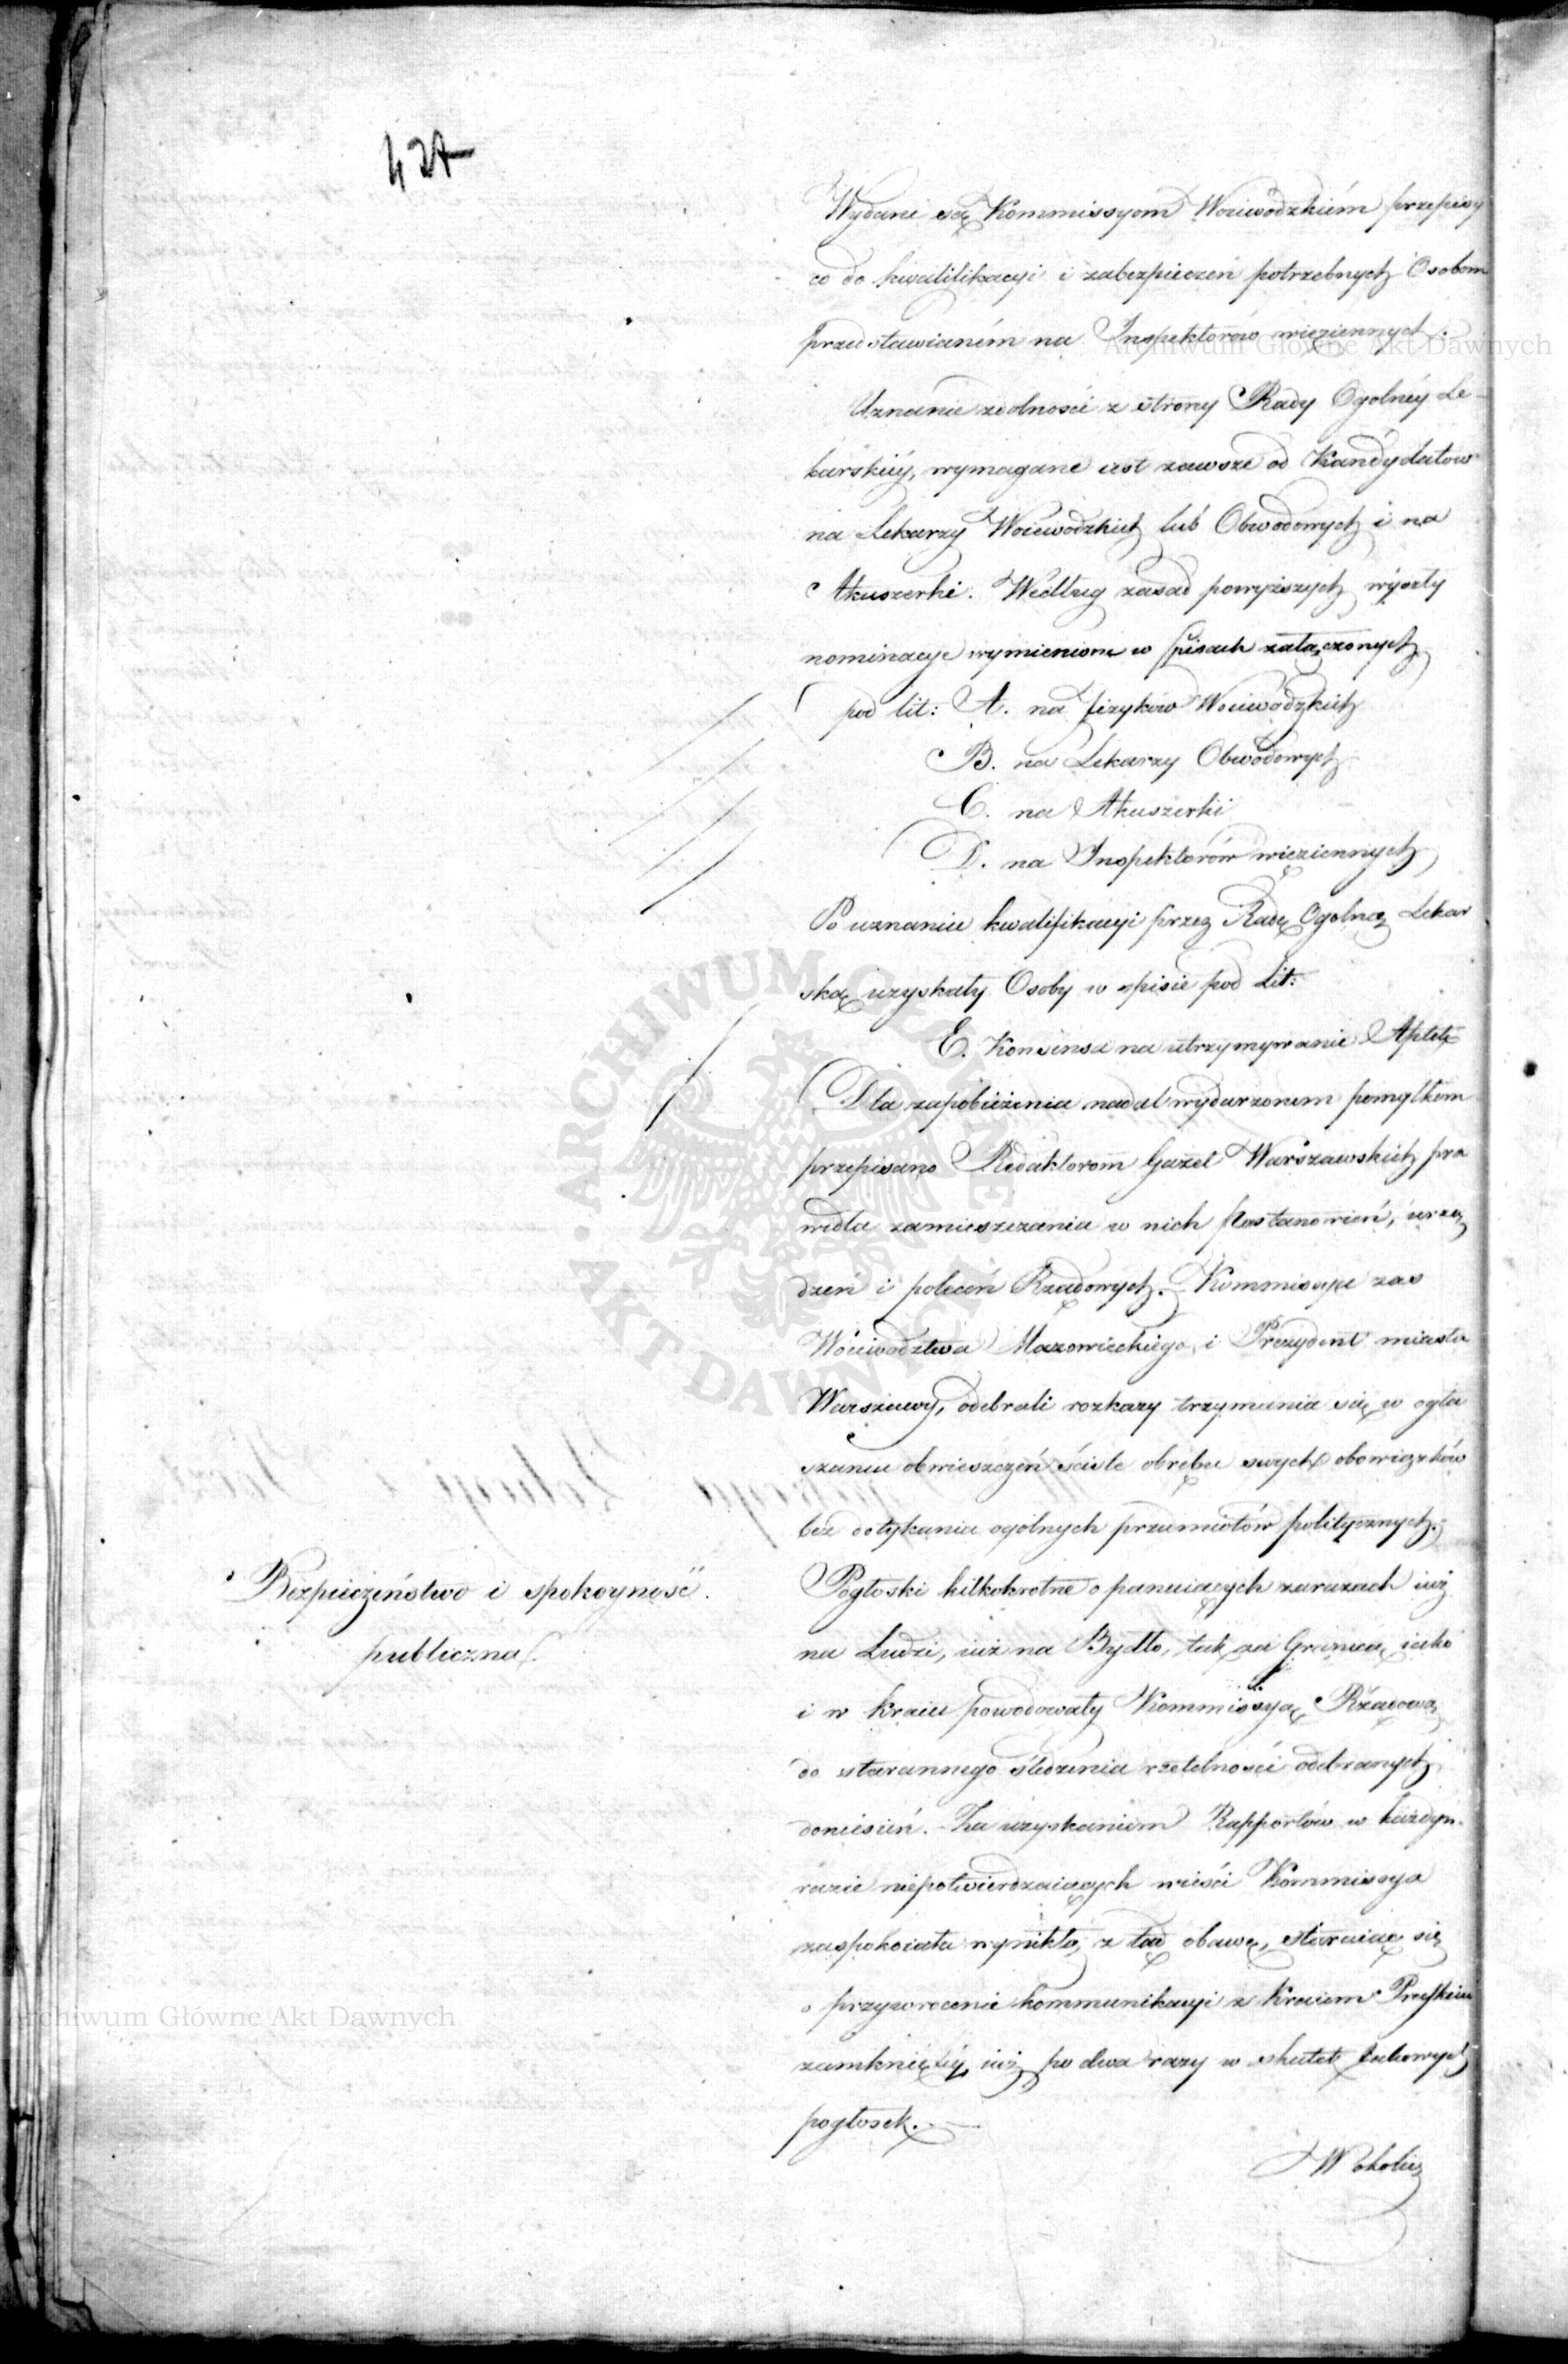 427
Wydane są Kommissyom Woiewodzkiém przepisy
co do kwalifikacyi i zabezpieczeń potrzebnych Osobom
przedstawianém na Inspektorów więziennych.
Uznanie zdolności z strony Rady Ogolnéy Le-
karskiéy, wymagane iest zawsze od Kandydatow
na Lekarzy Woiewodzkich lub Obwodowych i na
Akuszerki. Według zasad powyższych wyszły
nominacye wymienione w spisach załączonych
pod lit: A. na fizyków Woiewodzkich
B. na Lekarzy Obwodowych
C. na Akuszerki
D. na Inspektorów więziennych
Po uznaniu kwalifikacyi przez Radę Ogolną Lekar
ską uzyskały Osoby w spisie pod Lit:
E. Konsensa na utrzymywanie Aptek
Dla zapobieżenia nadal wydarzonem pomyłkom
przepisano Redaktorom Gazet Warszawskich pra
widła zamieszczania w nich Postanowień, urzą
dzeń i poleceń Rządowych. Kommissye zas
Woiewodztwa Mazowieckiego i Prezydent miasta
Warszawy, odebrali rozkazy trzymania się w ogła
szaniu obwieszczeń ściśle obrębu swych obowiązków
bez dotykania ogólnych przedmiotów politycznych.
Bezpieczeństwo i spokoyność
publiczna.
Pogłoski kilkokrotne o panuiących zarazach iuż
na Ludzi, iuż na Bydło, tak za Granicą, iako
i w kraiu powodowały Kommissyą Rządową
do starannego śledzenia rzetelności odebranych
doniesień. Za uzyskaniem Rapportów w każdym
razie niepotwierdzaiących wieści Kommissya
zaspokoiała wynikłą z tąd obawę, staraiąc się
o przywrocenie kommunikacyi z Kraiem Pruskim
zamkniętéy iuż po dwa razy w skutek takowych
pogłosek.
W okolicy
Archiwum Główne Akt Dawnych
Archiwum Główne Akt Dawnych
ARCHIWUM GŁÓWNE AKT DAWNYCH